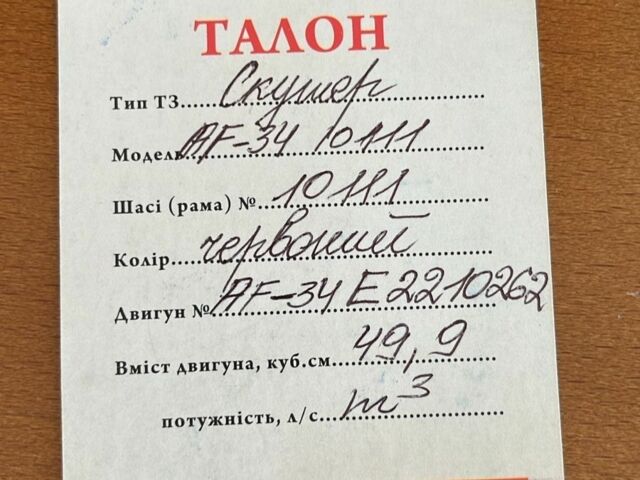 ТАЛОН
Тип ТЗ Скутер
Модель AF-34 10111
Шасі (рама) № 10111
Колір червоний
Двигун № AF-34 E2210262
Вміст двигуна, куб.см 49,9
потужність, л/с m³